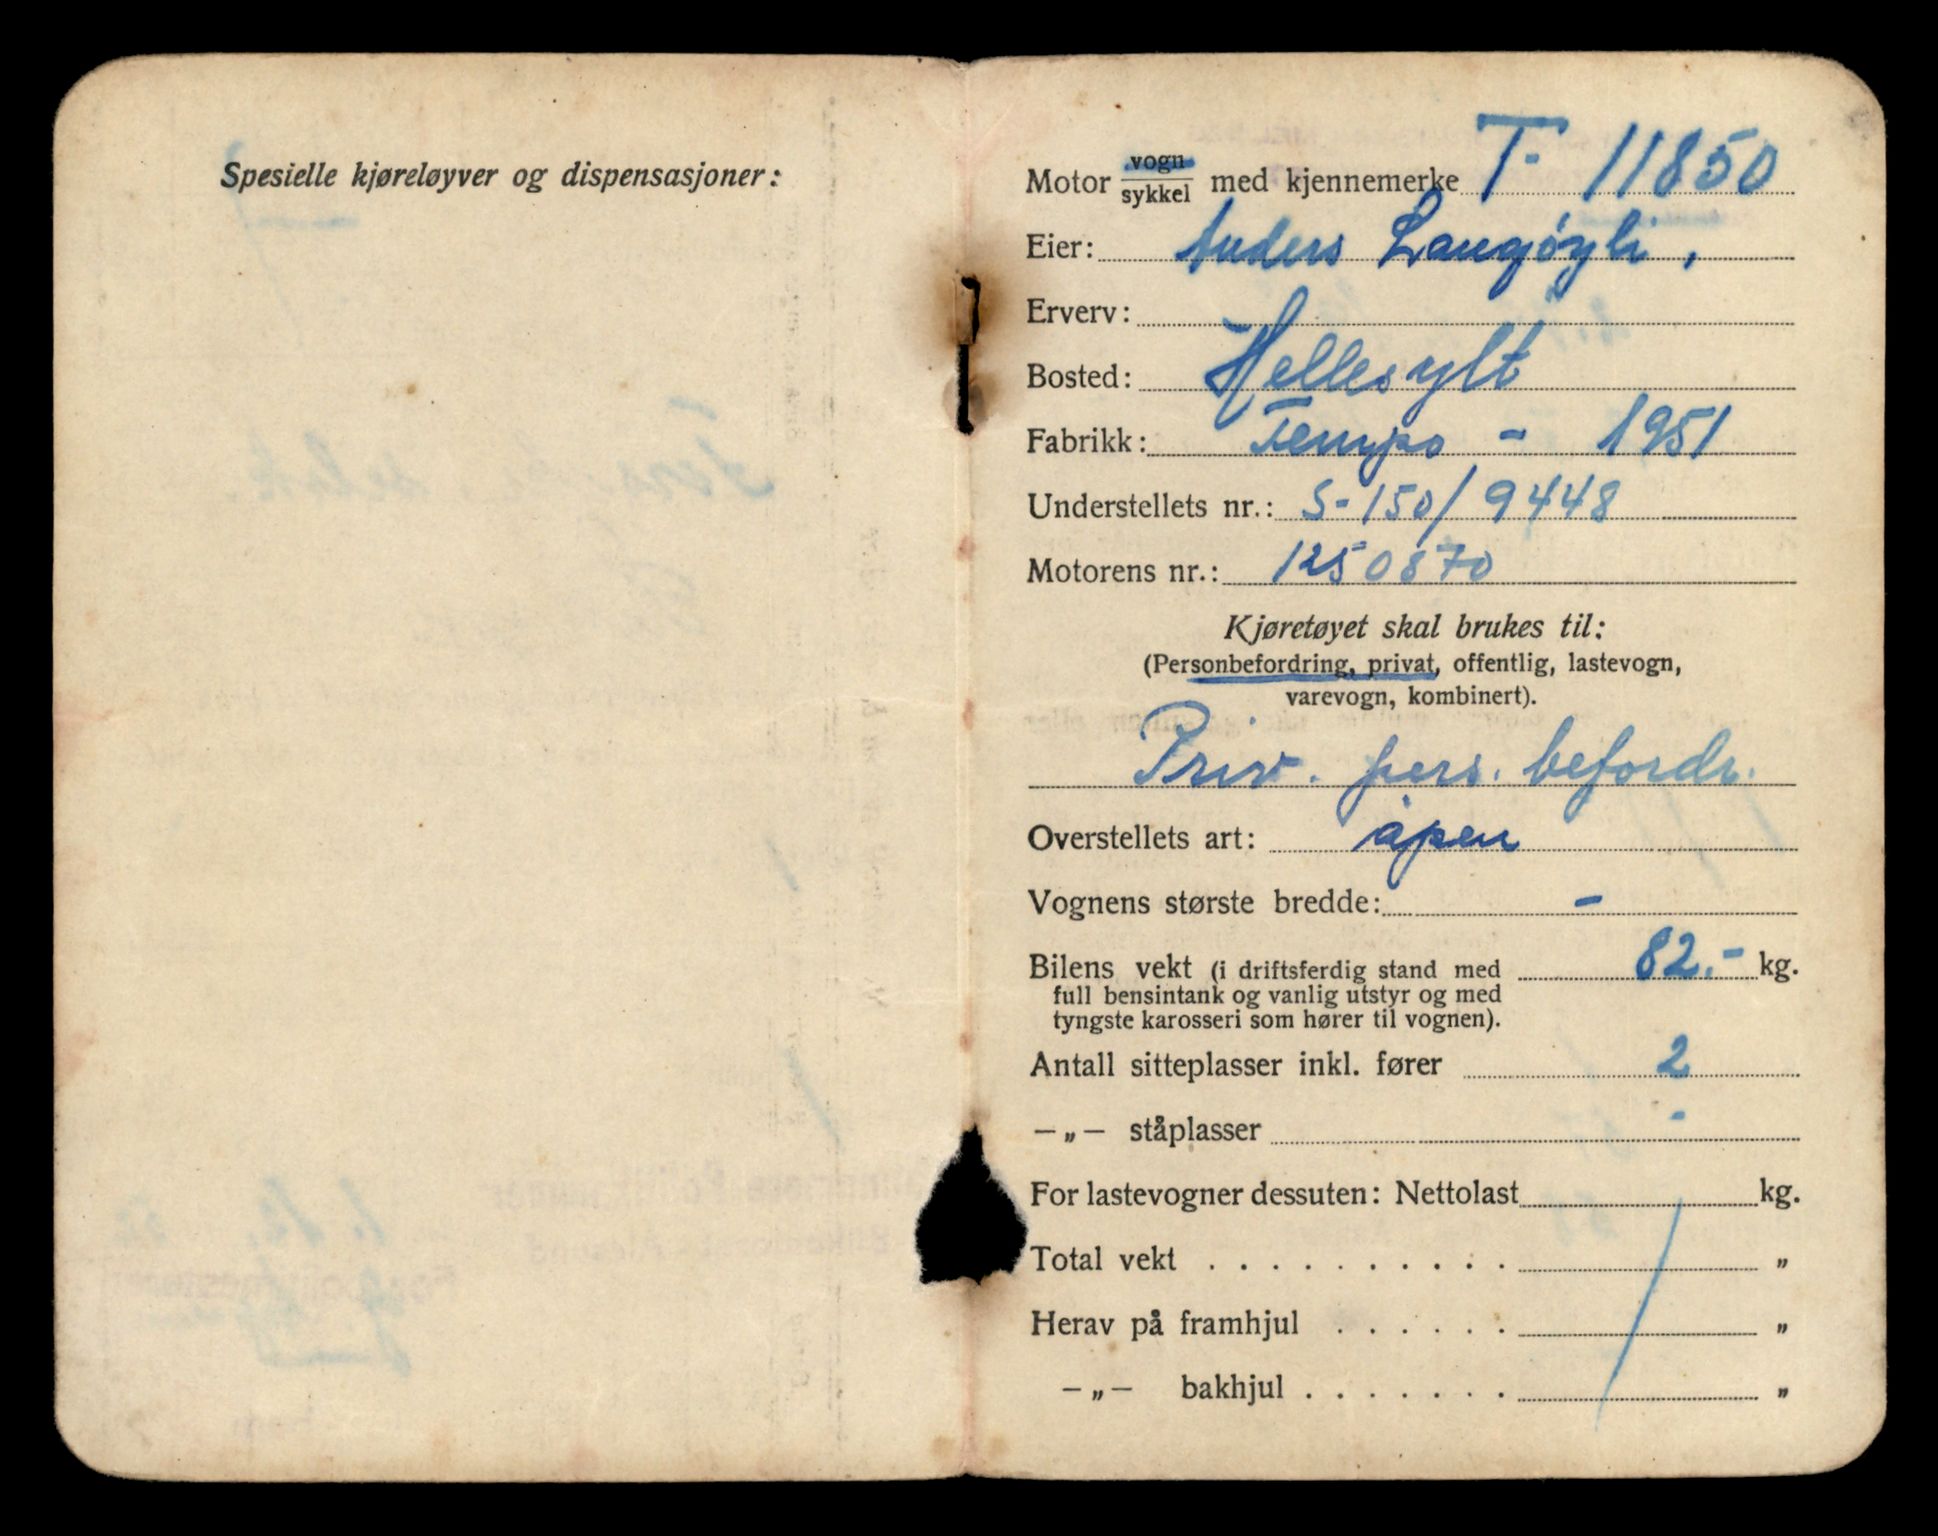 Spesielle kjøreløyver og dispensasjoner:
Motor vogn/sykkel med kjennemerke T- 11850
Eier: Anders Langøyli,
Erverv:
Bosted: Hellesylt
Fabrikk: Tempo - 1951
Understellets nr.: S-150/9448
Motorens nr.: 1250870
Kjøretøyet skal brukes til:
(Personbefordring, privat, offentlig, lastevogn,
varevogn, kombinert).
Priv. pers. befordr.
Overstellets art: åpen
Vognens største bredde: -
Bilens vekt (i driftsferdig stand med 82.- kg.
full bensintank og vanlig utstyr og med
tyngste karosseri som hører til vognen).
Antall sitteplasser inkl. fører 2
—„— ståplasser -
For lastevogner dessuten: Nettolast kg.
Total vekt . . . . . . . . . . „
Herav på framhjul . . . . . . „
—„— bakhjul . . . . . . . „